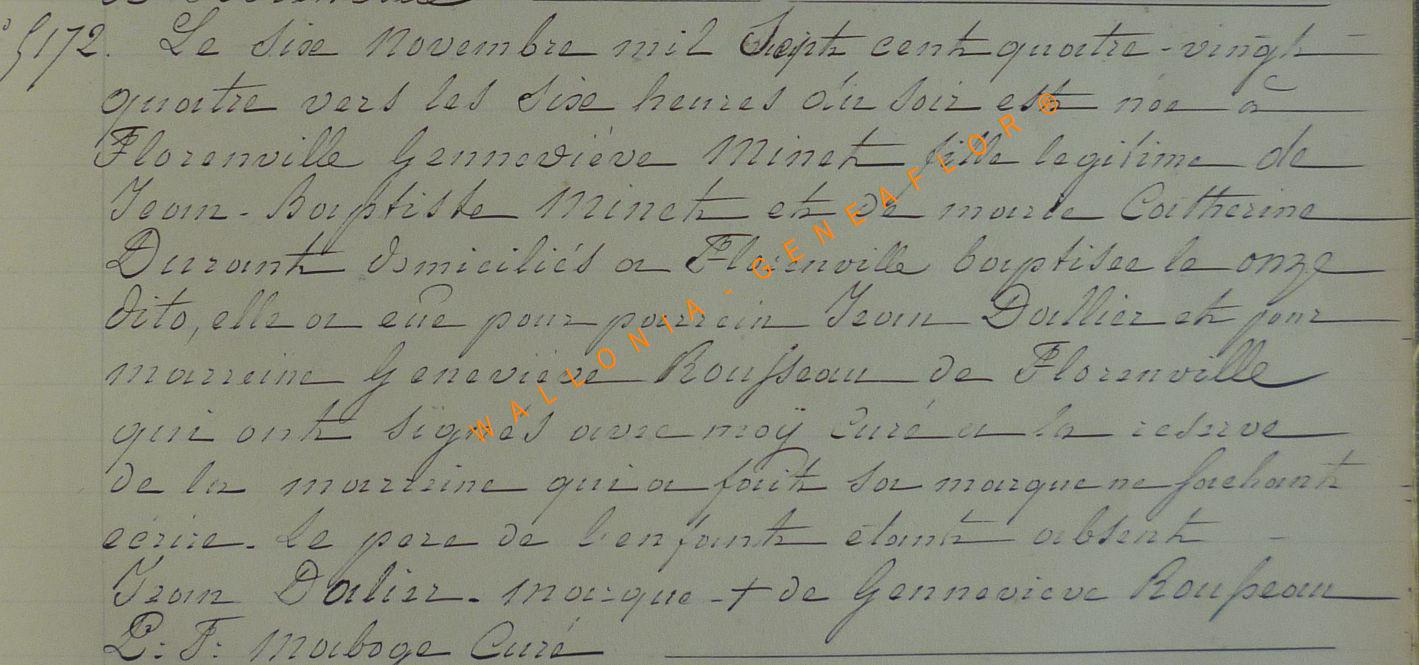 5172. Le six Novembre mil Sept cent quatre-vingt
quatre vers les six heures du soir est née à
Florenville Genneviève Minet fille legitime de
Jean-Baptiste Minet et de marie Catherine
Durant domiciliés a Florenville baptisee le onze
dito, elle a eüe pour parrein Jean Dallier et pour
marreine Genevieve Rousseau de Florenville
qui ont signés avec moÿ Curé a la reserve
de la marreine qui a fait sa marque ne sachant
ecrire. Le pere de l'enfant etant absent
Jean Dalier. marque + de Gennevieve Rousseau
P: F: Maboge Curé
WALLONIA - GENEAFLOR ®